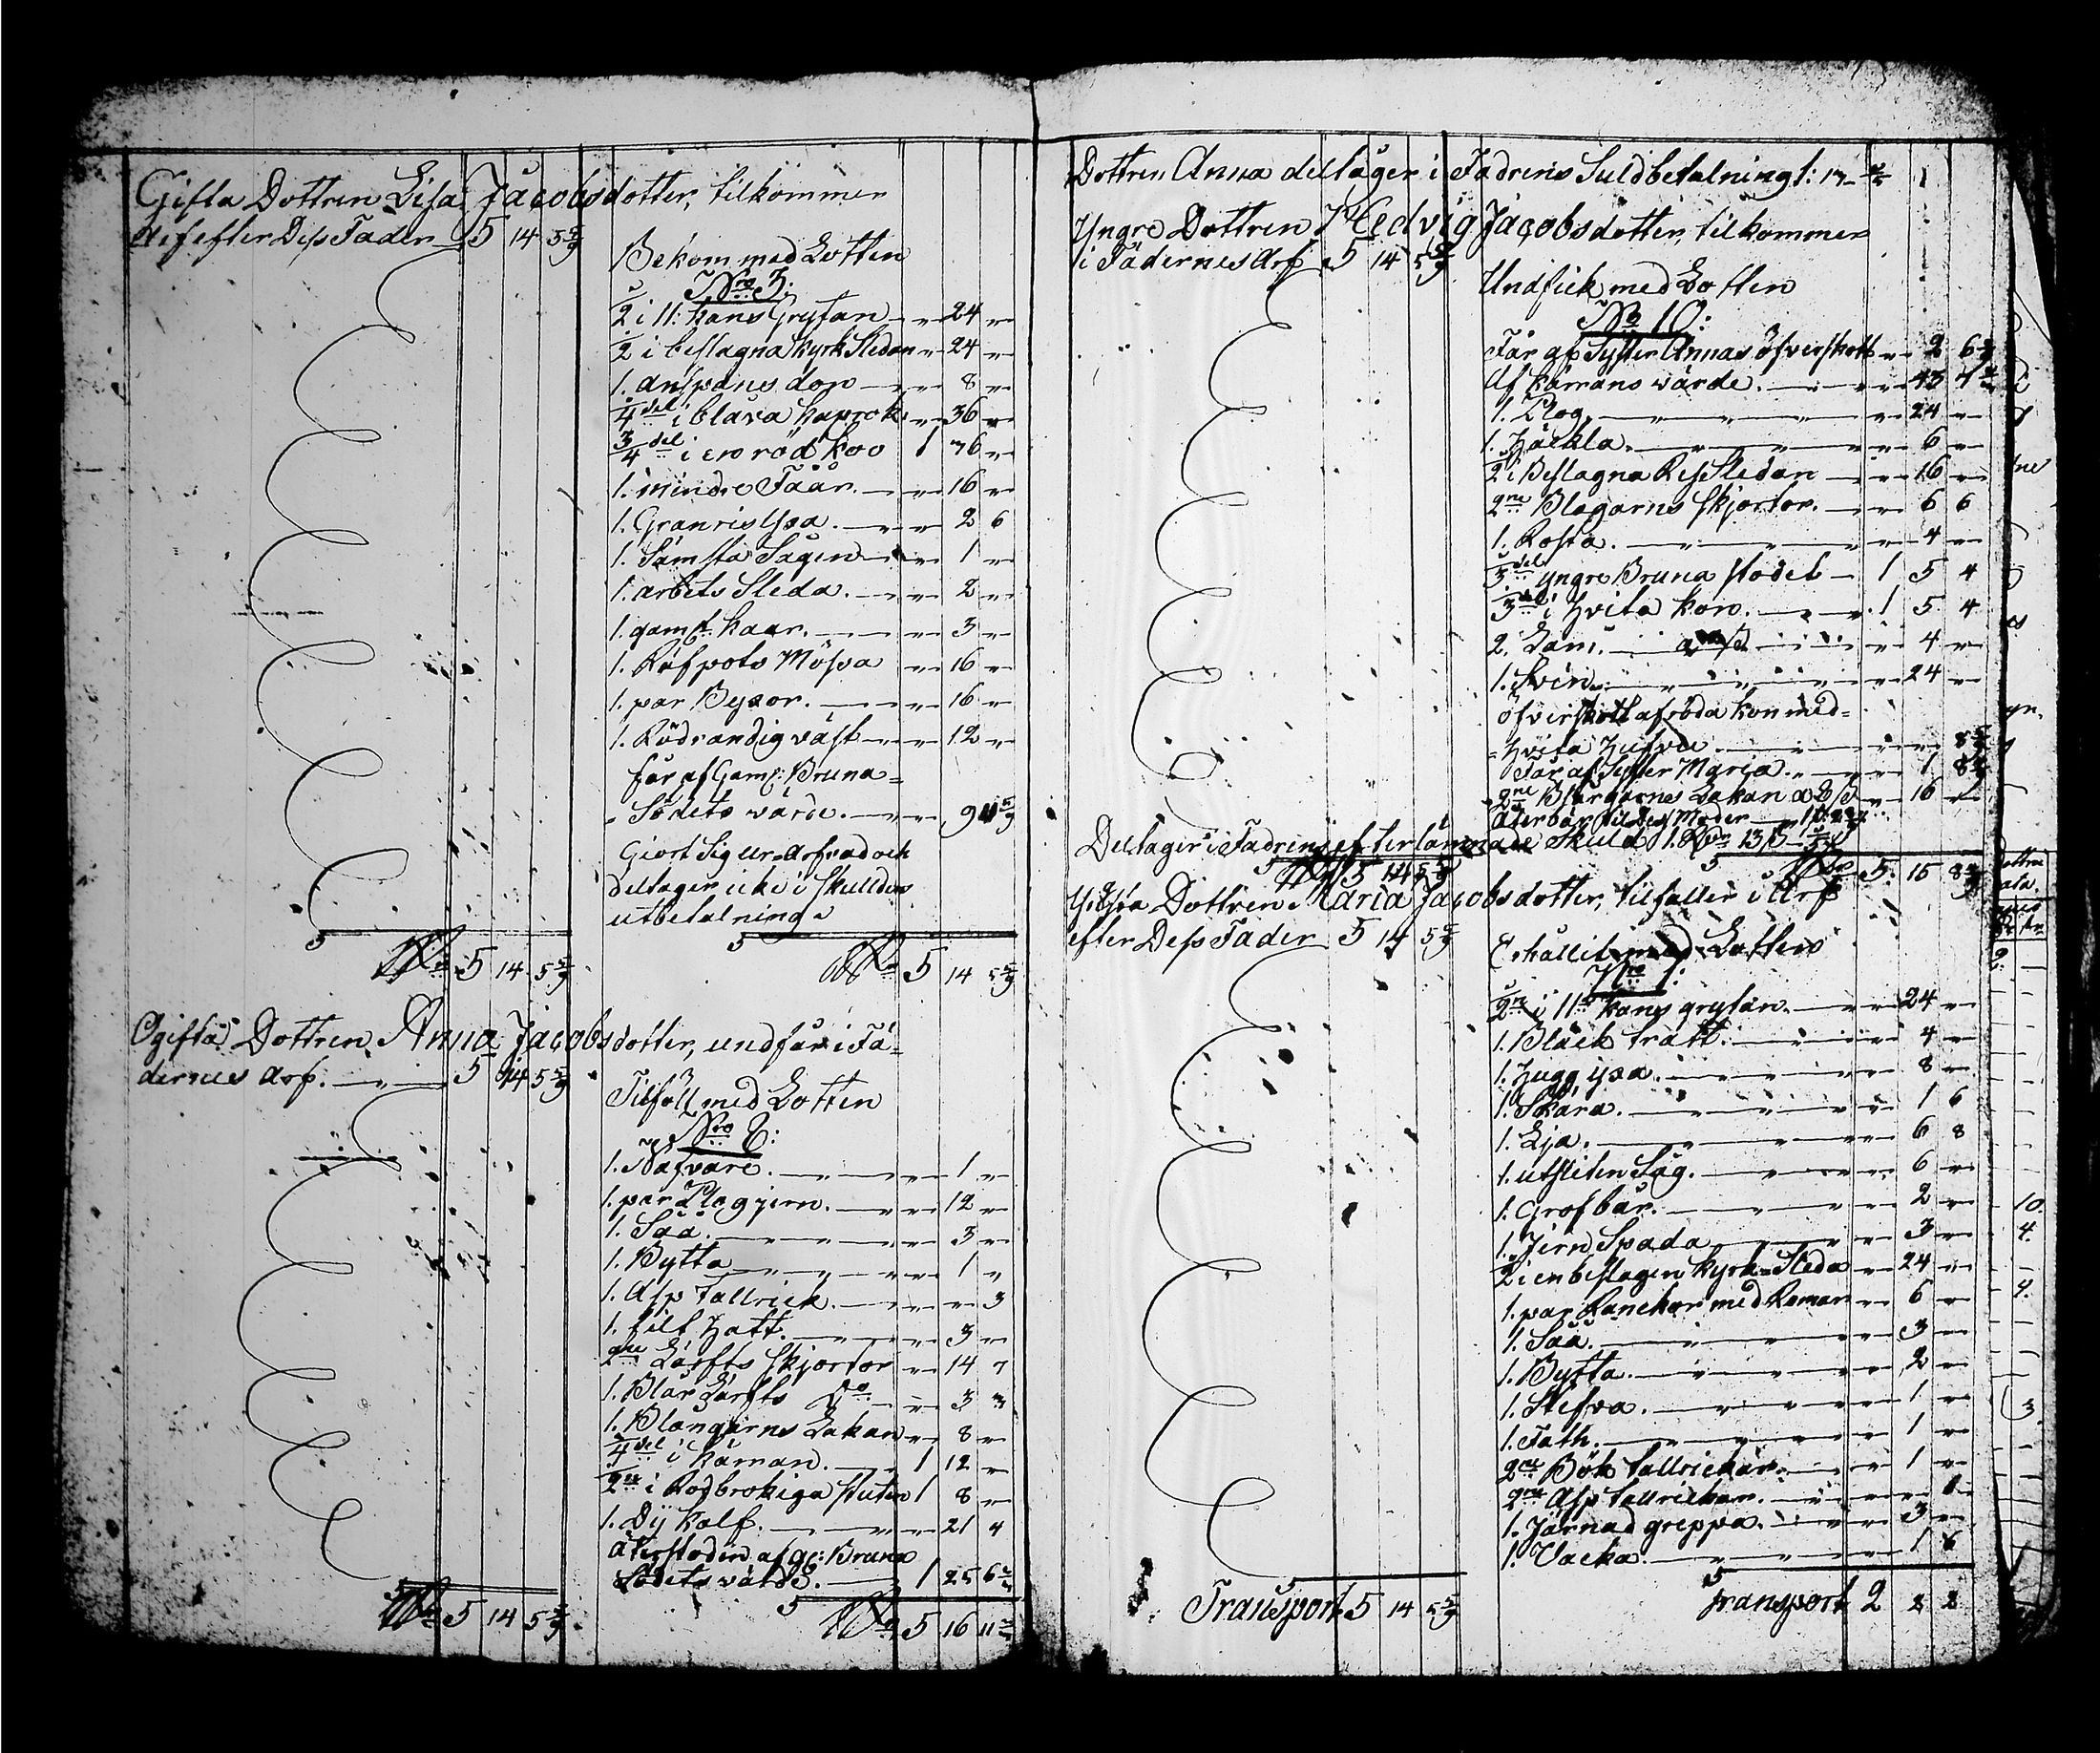 Gifta Dottren Lisa Jacobsdotter, tilkommer
Arf efter Dess Fader 5 14 5 5/9
Bekom med Lotten
Nro 3:
1/2 i 11: kans Grytan 24
1/2 i beslagna kyrk Sledan 24
1. anspans don 8
1/4 del i blåva kaprok 36
3/4 del i en röd koo 1 36
1. mindre Fåår 16
1. Granris Yxa 2 6
1. Såmsta Sågen 1
1. arbets Sleda 2
1. gam:t kaar 3
1. Räfpots Mössa 16
1. par Byxor 16
1. Rödrandig väst 12
får af Gaml: Bruna
Stodets värde 9 11 5/9
Giort Sig urarfvad och
deltager icke i skulldens
utbetalning
5 14 5 5/9 5 14 5 5/9
Ogifta Dottren Anna Jacobsdotter, undfår i Fä-
dernes Arf 5 14 5 5/9
Tilföll med Lotten
Nro 8:
1. Nafvare 1
1. par Plogjern 12
1. Såå 3
1. Bytta 1
1. Asp Tallrick 3
1. filt Hatt 3
2ne Lärfts skjortor 14 7
1. Blår Lärfts Do 3 3
1. Blångarns Lakan 8
1/4 del i kåman 1 12
1/2 i Rödbrokiga stuten 1 8
1. Dij kalf 21 4
återstoden af gl: Bruna
Stodets värde 1 25 6
5 14 5 5/9 5 16 11
Dottren Anna deltager i Fadrens Suldbetalning 1: 13
Yngre Dottren Hedvig Jacobsdotter, tilkommer
i Fädernes Arf 5 14 5 5/9
Undfick med Lotten
No 10:
Får af Syster Annas öfverskott 2 6
Af kåmans värde 43 7
1. Plog 24
1. Häckla 6
1/2 i Beslagna ResSledan 16
2ne Blagarns skjortor 6 6
1. Rosta 4
1/3 del yngre Bruna stodet 1 5 4
1/3 del i Hvita kon 1 5 4
2. Lam 4
1. Svin 24
öfverskott af röda kon med
Hvita Hufvu 8
Får af Syster Maria 1 8
2ne Blårgarnes Lakan a 8/3 16
återbär til des Moder
Deltager i Fadrens efterlämnade Skuld 1. 13/5
5 14 5 5/9 5 15 8
Gifta Dottren Maria Jacobsdotter, tilfaller i Arf
efter Dess Fader 5 14 5 5/9
Erhållit med Lotten
Nro 1:
1/2 i 11 kans grytan 24
1. Bläck tratt 4
1. Hugg yxa 8
1. Skära 1 6
1. Lja 6 8
1. utsliten Såg 6
1. Grofbår 2
1. Jern Spada 3
1/2 i en beslagen kyrk-Sleda 24
1. par Rånekor med Remar 6
1. Såå 3
1. Bytta 2
1. Stefva 1
1. Fath 1
2ne Bök tallrickar 1
2ne Asp tallrickar 6
1. Järnad greppa 3
1. Vacka 1 6
Transport 5 14 5 5/9 Transport 2 2 2